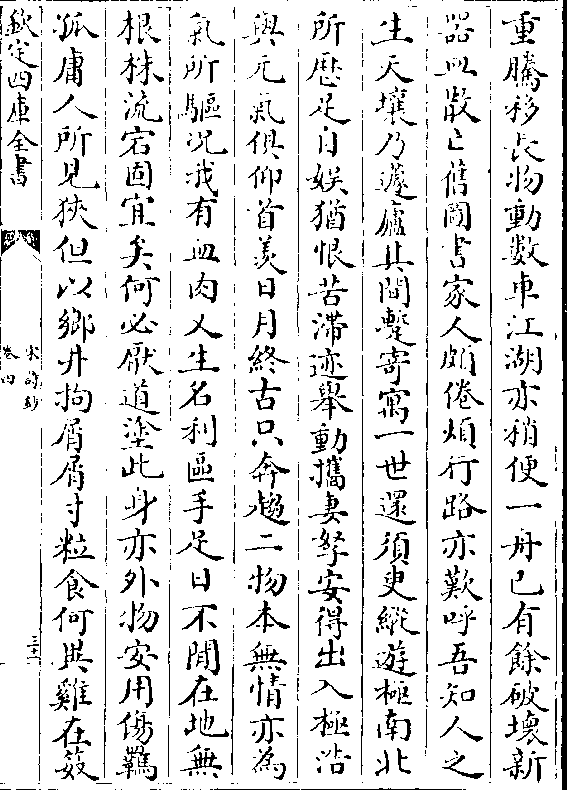 重騰移長物動數車江湖亦稍便一舟已有餘破壞新
器皿散亡舊圖書家人頗倦煩行路亦歎呼吾知人之
生天壤乃蘧廬其間蹔寄寓一世還須臾縱遊極南北
所歴足自娱猶恨苦滯迹舉動攜妻孥安得出入極沿
與元氣俱仰首羨日月終古只奔趨二物本無情亦為
氣所驅况我有血肉乂生名利區手足日不閒在地無
根株流宕固宜矣何必厭道塗此身亦外物安用傷羈
孤庸人所見狹但以鄉井拘屑屑寸粒食何異雞在笯
欽定四庫全書
宋詩鈔
卷四
三十一